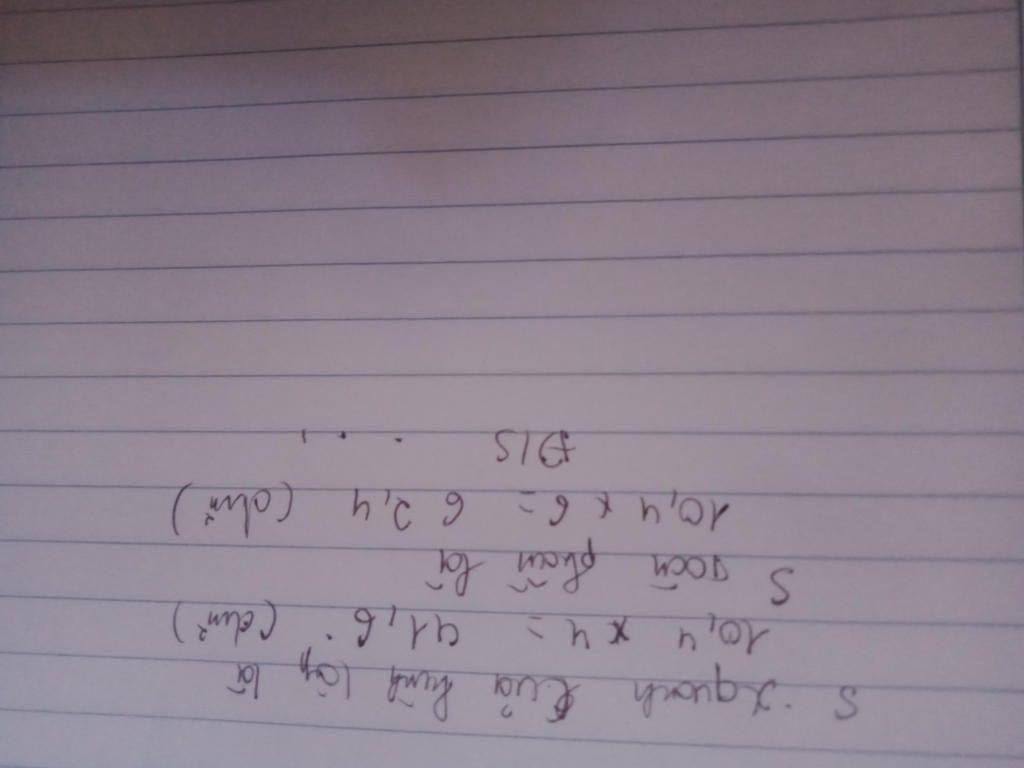 S xquanh của hình lập là
10,4 x 4 = 41,6 (dm²)
S toàn phần là
10,4 x 6 = 62,4 (dm²)
Đ/S . . . ,